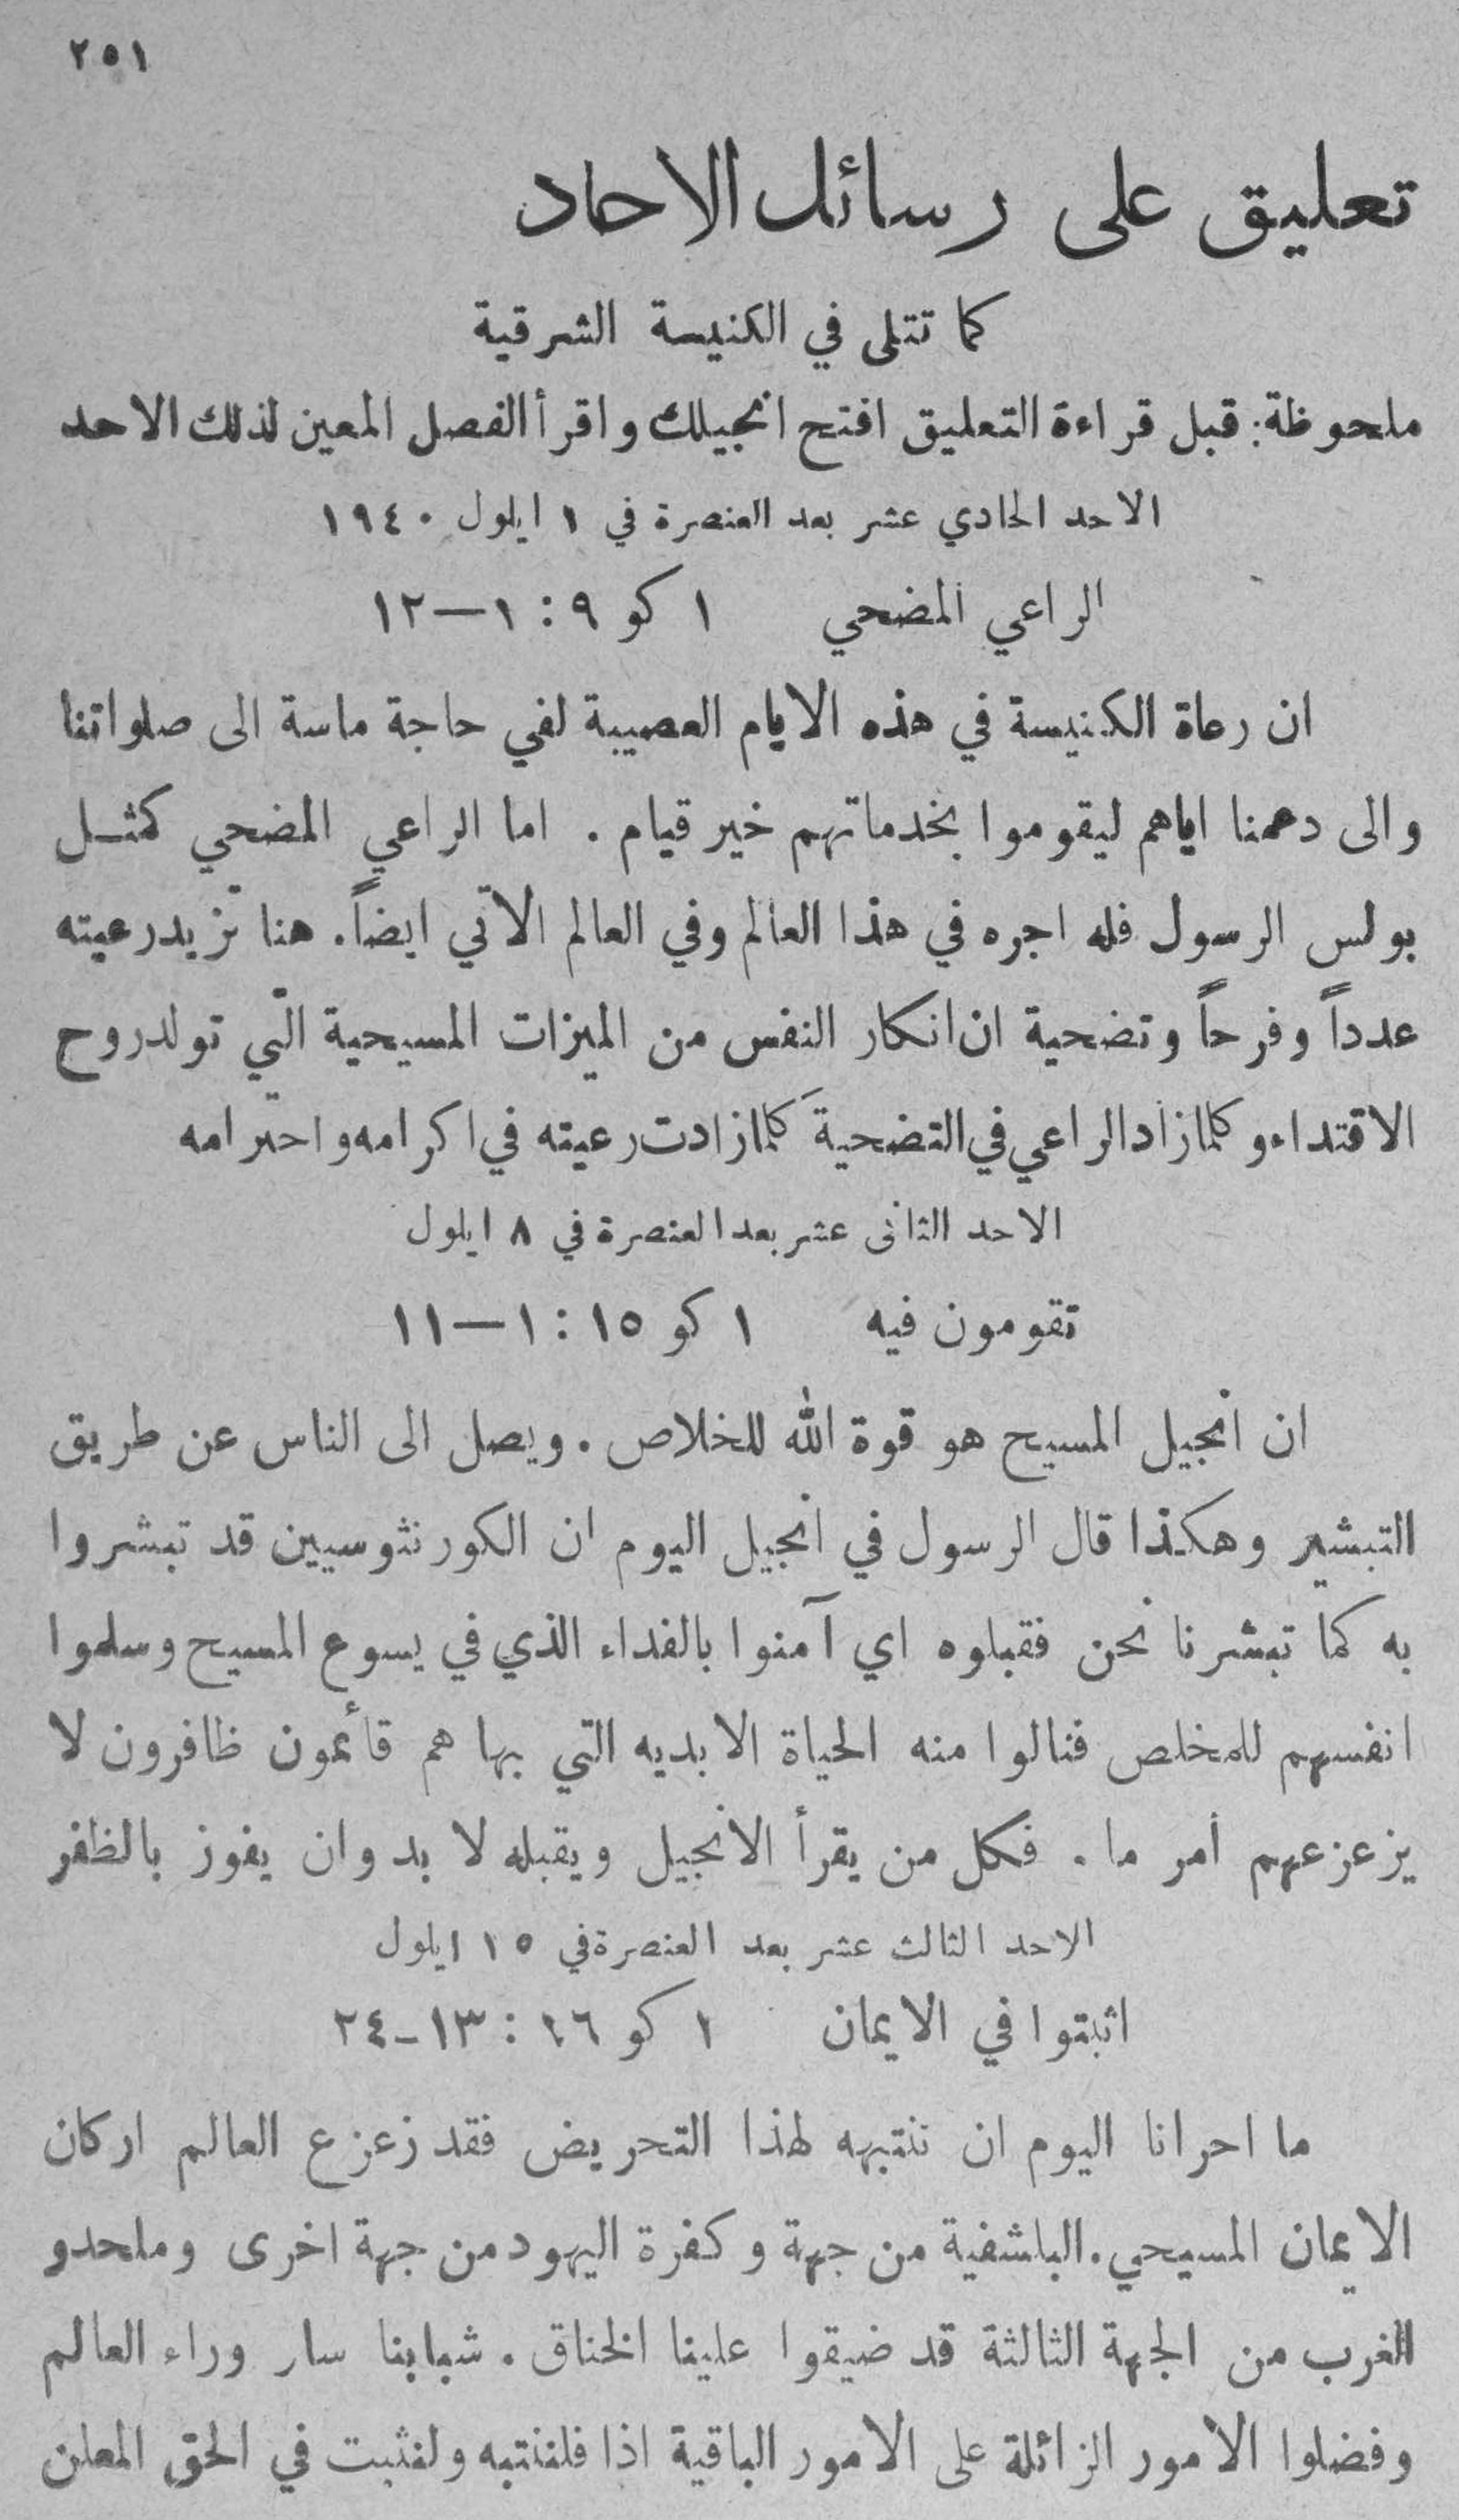 ٢٥١
تعليق على رسائل الاحاد
كما تتلى في الكنيسة الشرقية
ملحوظة: قبل قراءة التعليق افتح انجيلك واقرأ الفصل المعين لذلك الاحد
الاحد الحادي عشر بعد العنصرة في ١ ايلول ١٩٤٠
الراعي المضحي ١ كو ٩ : ١—١٢
ان رعاة الكنيسة في هذه الايام العصيبة لفي حاجة ماسة الى صلواتنا
والى دعمنا اياهم ليقوموا بخدماتهم خير قيام . اما الراعي المضحي كمثل
بولس الرسول فله اجره في هذا العالم وفي العالم الآتي ايضاً. هنا تزيد رعيته
عدداً وفرحاً وتضحية ان انكار النفس من الميزات المسيحية التي تولد روح
الاقتداء وكلما زاد الراعي في التضحية كلما زادت رعيته في اكرامه واحترامه
الاحد الثاني عشر بعد العنصرة في ٨ ايلول
تقومون فيه ١ كو ١٥ : ١—١١
ان انجيل المسيح هو قوة الله للخلاص . ويصل الى الناس عن طريق
التبشير وهكذا قال الرسول في انجيل اليوم ان الكورنثوسيين قد تبشروا
به كما تبشرنا نحن فقبلوه اي آمنوا بالفداء الذي في يسوع المسيح وسلموا
انفسهم للمخلص فنالوا منه الحياة الابديه التي بها هم قائمون ظافرون لا
يزعزعهم امر ما . فكل من يقرأ الانجيل ويقبله لا بد وان يفوز بالظفر
الاحد الثالث عشر بعد العنصرة في ١٥ ايلول
اثبتوا في الايمان ١ كو ١٦ : ١٣-٢٤
ما احرانا اليوم ان ننتبه لهذا التحريض فقد زعزع العالم اركان
الايمان المسيحي. البلشفية من جهة وكفرة اليهود من جهة اخرى وملحدو
الغرب من الجهة الثالثة قد ضيقوا علينا الخناق . شبابنا سار وراء العالم
وفضلوا الامور الزائلة على الامور الباقية اذا فلننتبه ولنثبت في الحق المعلن